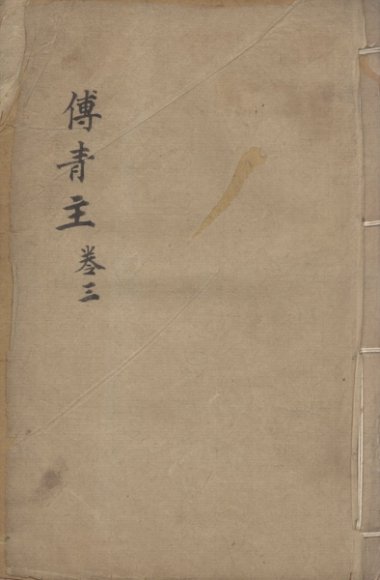 傅青主 卷三